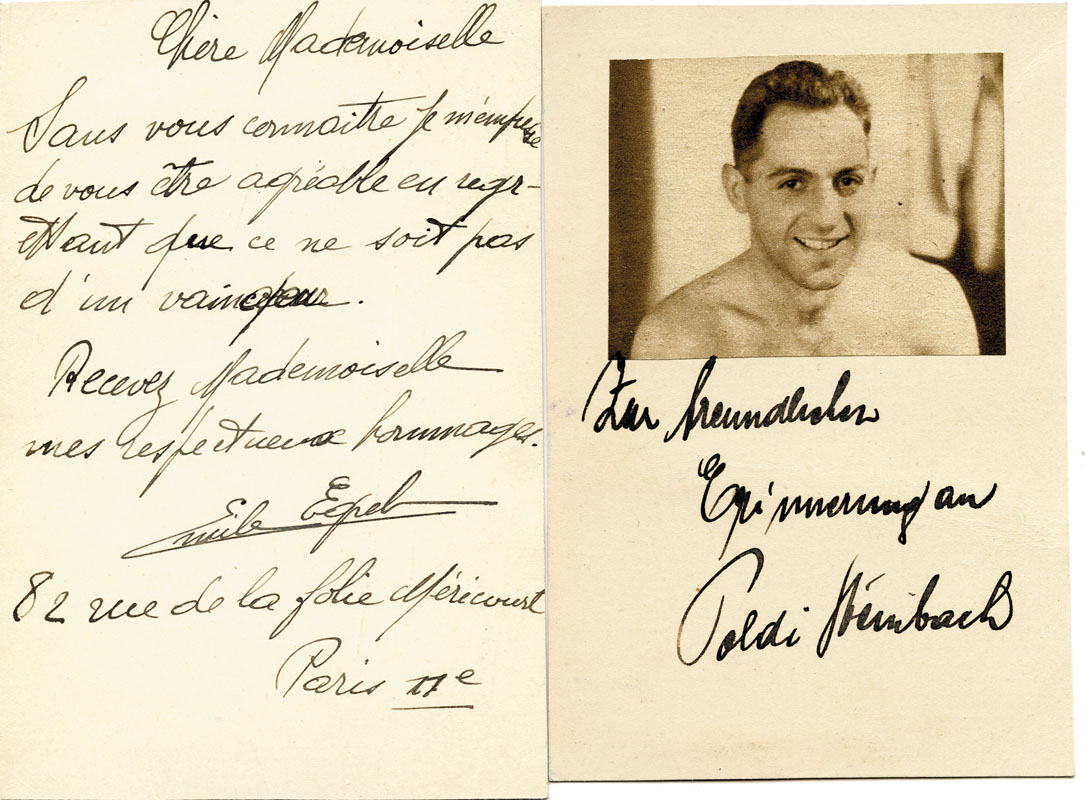 Chère Mademoiselle
Sans vous connaître je m'empresse
de vous être agréable en regr-
ettant que ce ne soit pas
d'un vainqueur.
Recevez Mademoiselle
mes respectueux hommages.
Emile
82 rue de la folie Méricourt
Paris 11e
Zur freundlichen
Erinnerung an
Poldi Steinbach